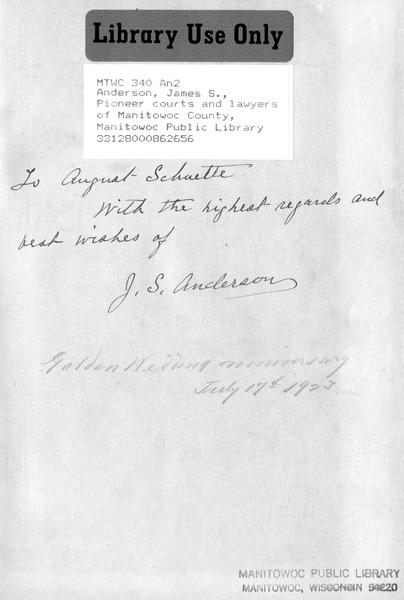 Library Use Only
MTWC 340 An2
Anderson, James S.,
Pioneer courts and lawyers
of Manitowoc County,
Manitowoc Public Library
33128000862656
To August Schuette
With the highest regards and
best wishes of
J. S. Anderson
Golden Wedding anniversary
July 17th 1923
MANITOWOC PUBLIC LIBRARY
MANITOWOC, WISCONSIN 54220